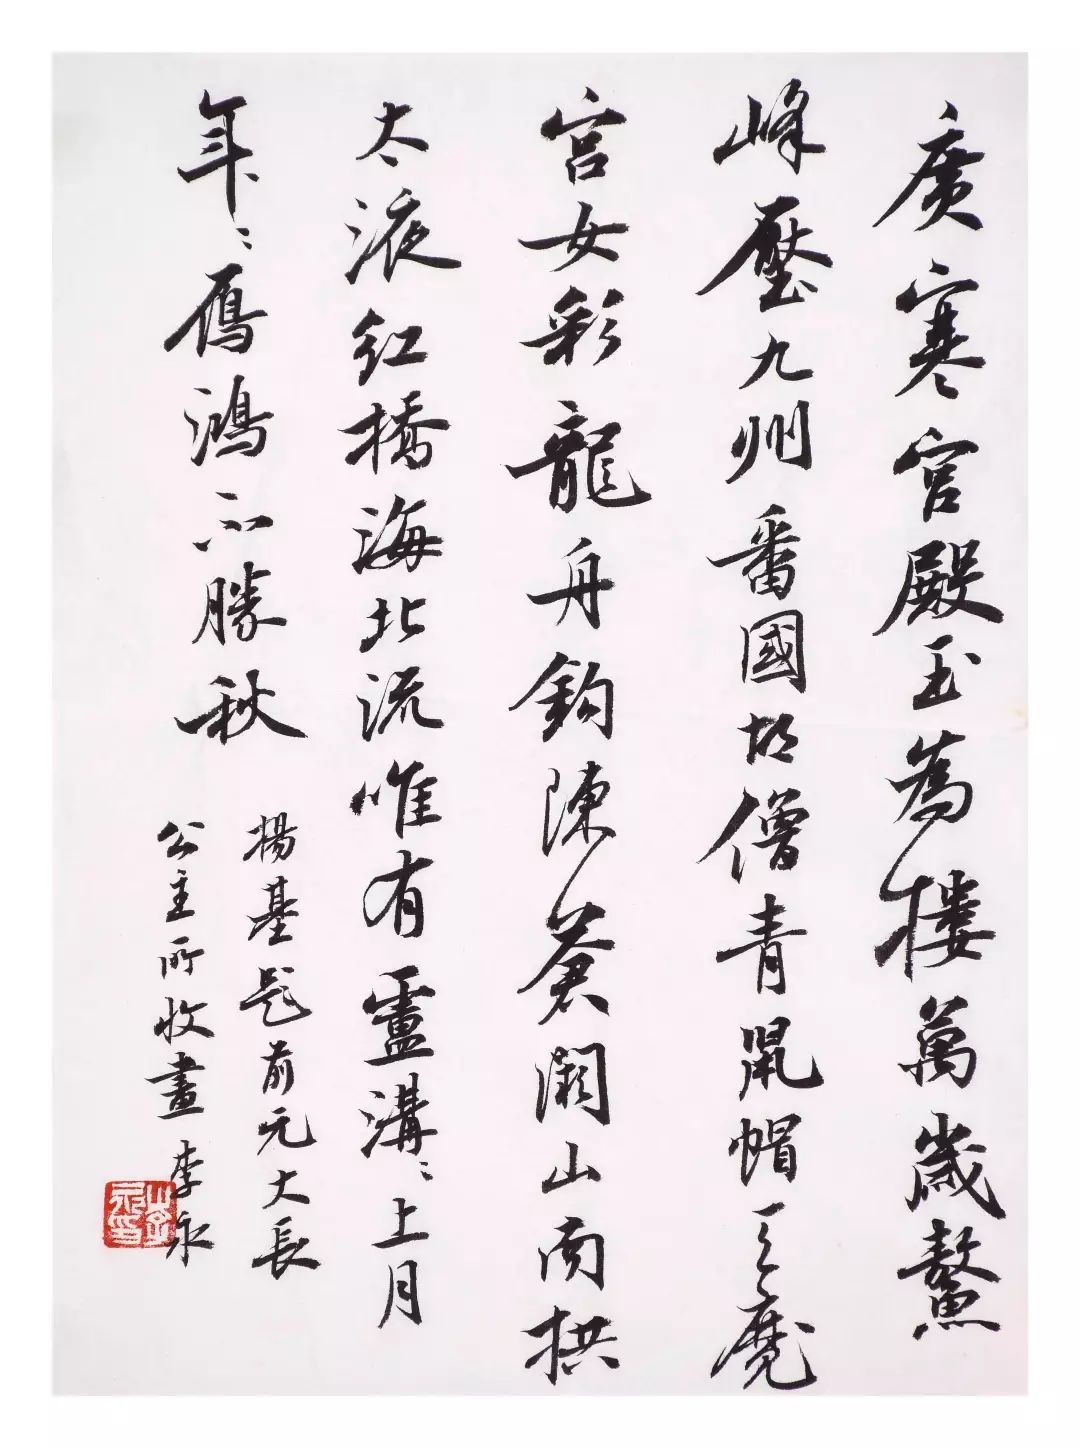 廣寒宮殿玉為樓萬歲鰲
峰壓九州番國胡僧青鼠帽天魔
宮女彩龍舟鉤陳蒼闕山南拱
太液紅橋海北流唯有盧溝〻上月
年〻雁鴻不勝秋
楊基題前元大長
公主所收畫 李永